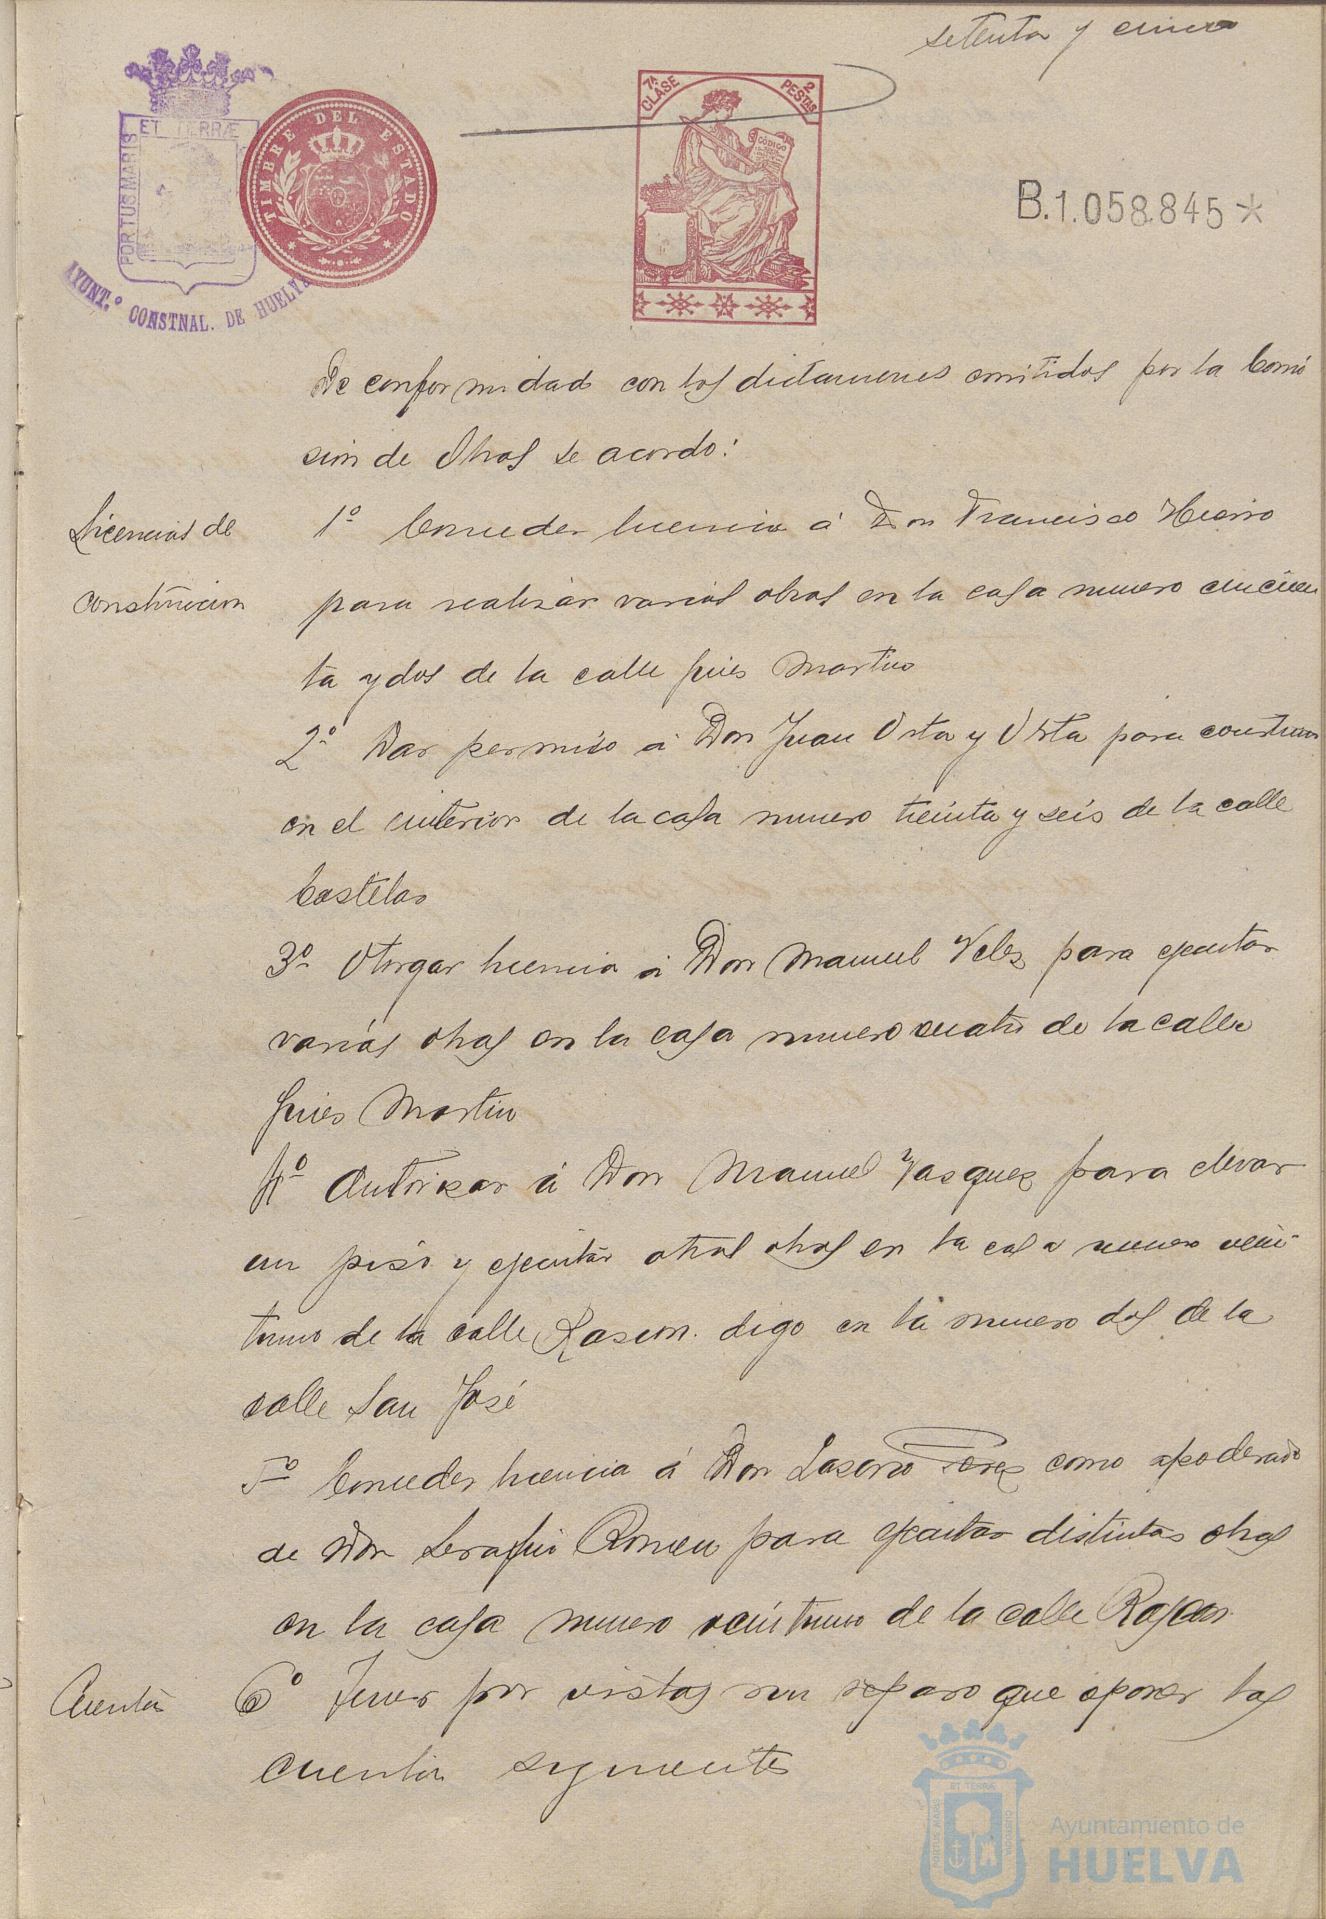 setenta y cinco
7ª CLASE
2 PESTAS
CÓDIGO
ET TERRÆ
PORTUS MARIS
TIMBRE DEL ESTADO
AYUNT.º CONSTNAL. DE HUELVA
B.1.058.845*
De conformidad con los dictamenes emitidos por la Comi
sion de Obras se acordo:
Licencias de
construccion
1º Conceder licencia á Don Francisco Hierro
para realizar varias obras en la casa numero cincuen
ta y dos de la calle Martin
2º Dar permiso á Don Juan Orta y Orta para construir
en el interior de la casa numero treinta y seis de la calle
Castelar
3º Otorgar licencia á Don Manuel Velez para ejecutar
varias obras en la casa numero cuatro de la calle
Martin
4º Autorizar á Don Manuel Vasquez para elevar
un piso y ejecutar otras obras en la casa numero vein
tiuno de la calle Rascon. digo en la numero dos de la
calle San José
5º Conceder licencia á Don Lasaro Perez como apoderado
de Don Serafin Romeu para ejecutar distintas obras
en la casa numero veintiuno de la calle Rascon
Cuentas
6º Tener por vistas sin reparo que oponer las
cuentas siguientes
ET TERRÆ
PORTUS MARIS
Ayuntamiento de
HUELVA